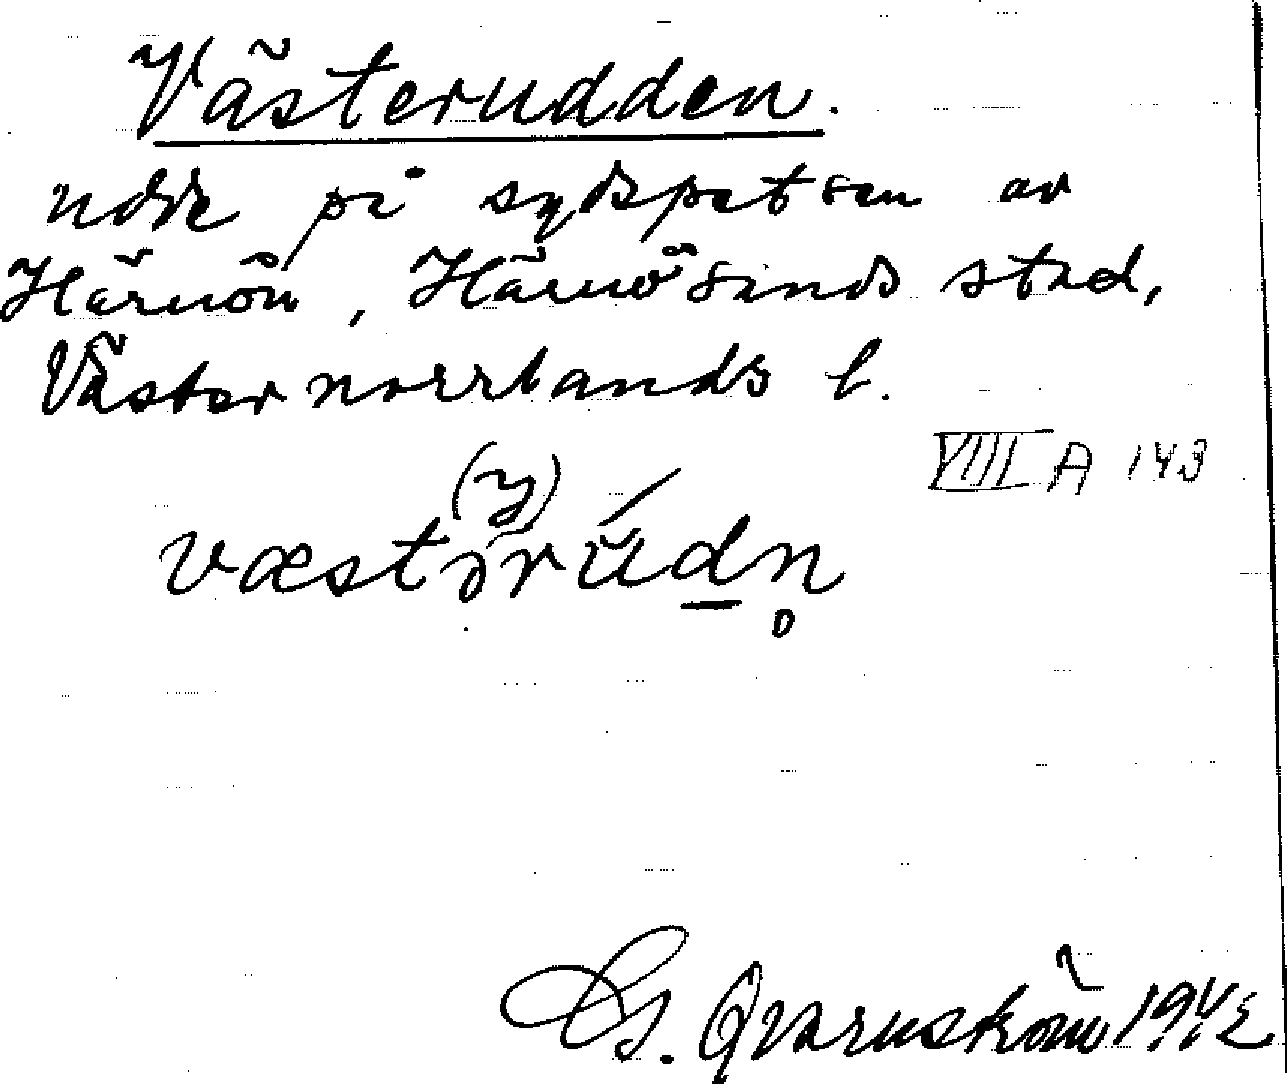 Västerudden.
udde på sydspetsen av
Härnön, Härnösands stad,
Västernorrlands l.
VIII A 143
(y)
væstərúdn̥
G. Qvarnström 1942